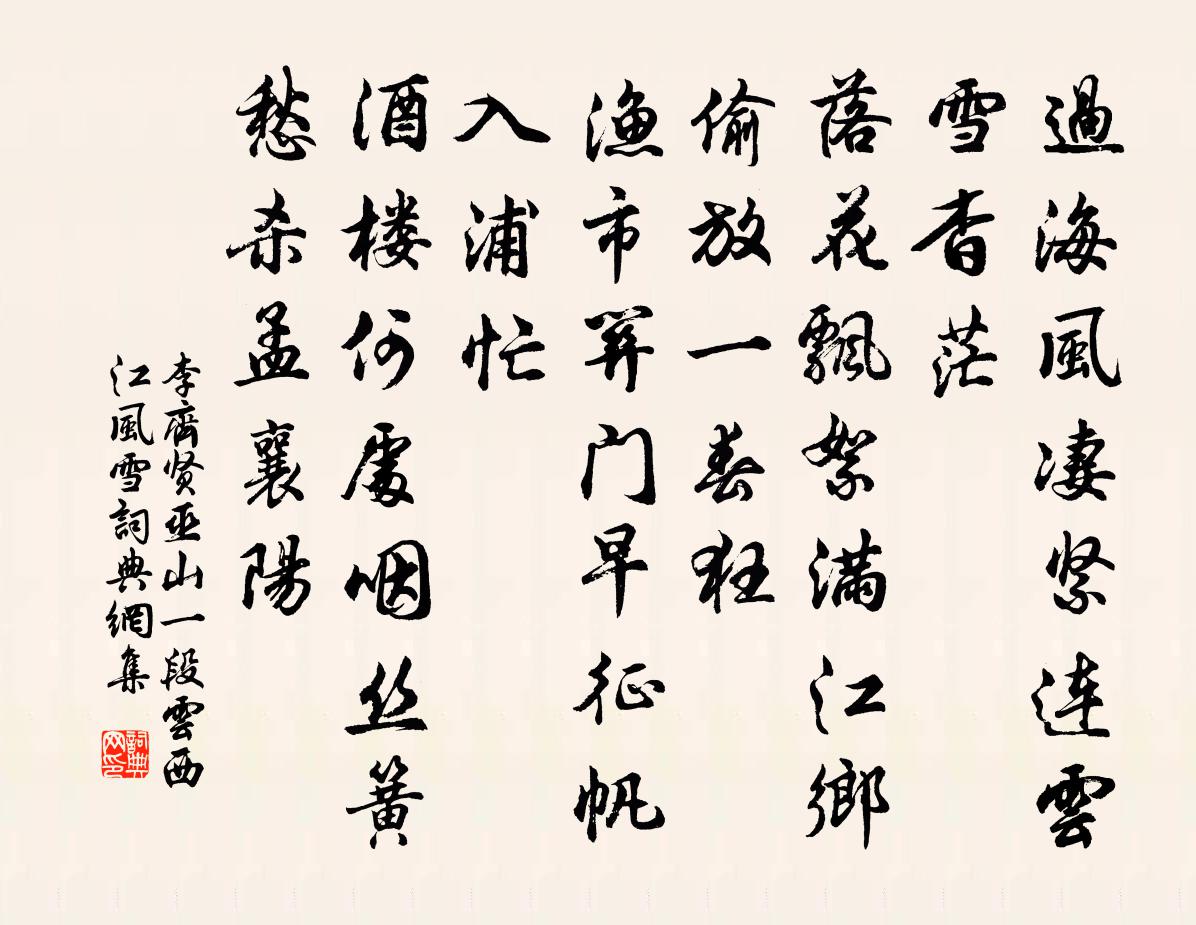 過海風凄紧连雲
雪杳茫
落花飄絮滿江鄉
偷放一春狂
渔市關门早征帆
入浦忙
酒楼何處咽丝簧
愁杀孟襄陽
李齊贤巫山一段雲西
江風雪詞典網集
詞典网印